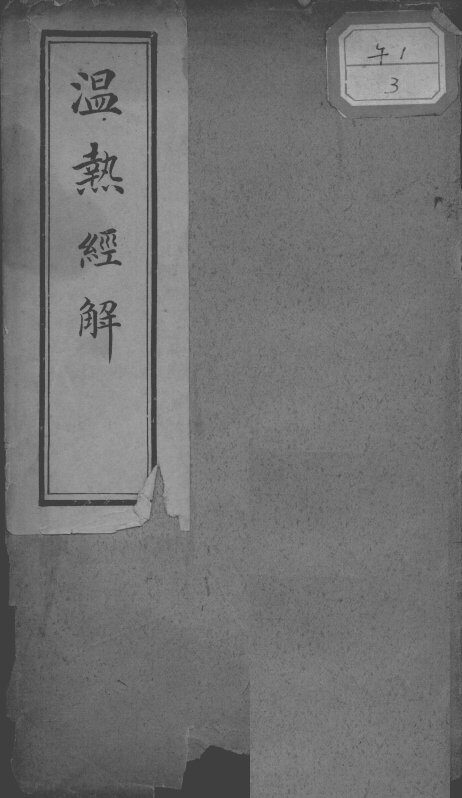 温熱經解
午1
3